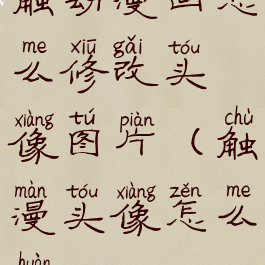 触动漫画怎
me xiū gǎi tóu
么修改头
xiàng tú piàn chù
像图片(触
màn tóu xiàng zěn me
漫头像怎么
huàn